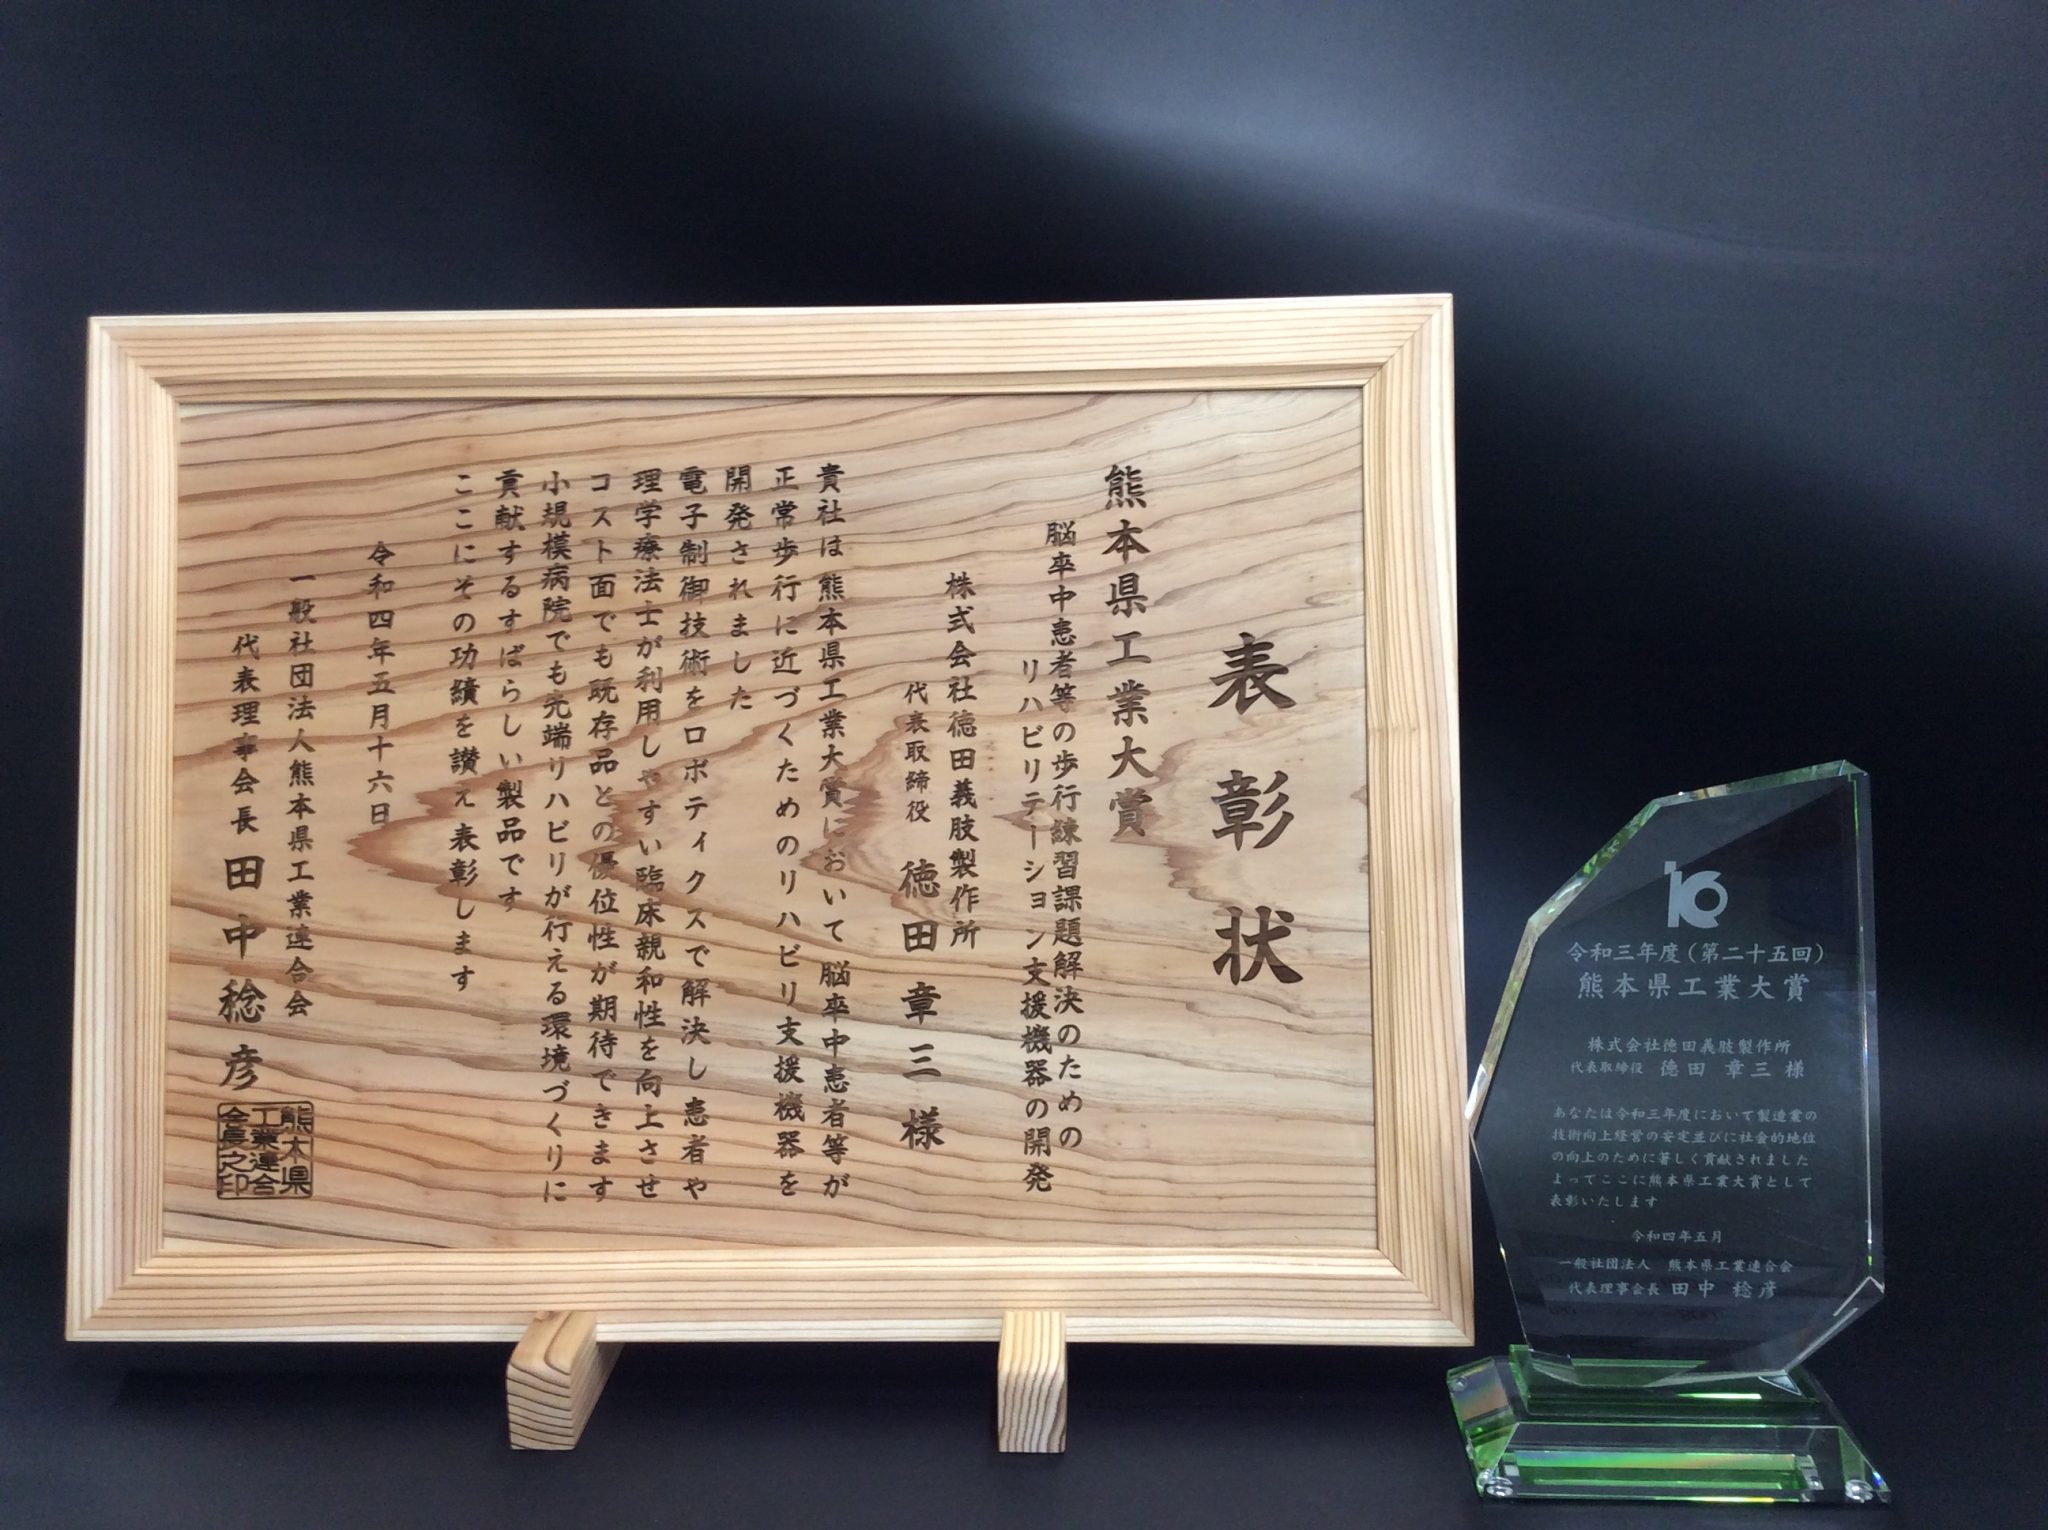 表彰状
熊本県工業大賞
脳卒中患者等の歩行練習課題解決のための
リハビリテーション支援機器の開発
株式会社徳田義肢製作所
代表取締役 徳田章三 様
貴社は 熊本県工業大賞において 脳卒中患者等が
正常歩行に近づくためのリハビリ支援機器を
開発されました
電子制御技術をロボティクスで解決し患者や
理学療法士が利用しやすい臨床親和性を向上させ
コスト面でも既存品との優位性が期待できます
小規模病院でも先端リハビリが行える環境づくりに
貢献するすばらしい製品です
ここにその功績を讃え 表彰します
令和四年五月十六日
一般社団法人熊本県工業連合会
代表理事会長 田中稔彦
熊本県
工業連合
会長之印
令和三年度(第二十五回)
熊本県工業大賞
株式会社徳田義肢製作所
代表取締役 徳田 章三 様
あなたは令和三年度において製造業の
技術向上経営の安定並びに社会的地位
の向上のために著しく貢献されました
よってここに熊本県工業大賞として
表彰いたします
令和四年五月
一般社団法人 熊本県工業連合会
代表理事会長 田中 稔彦